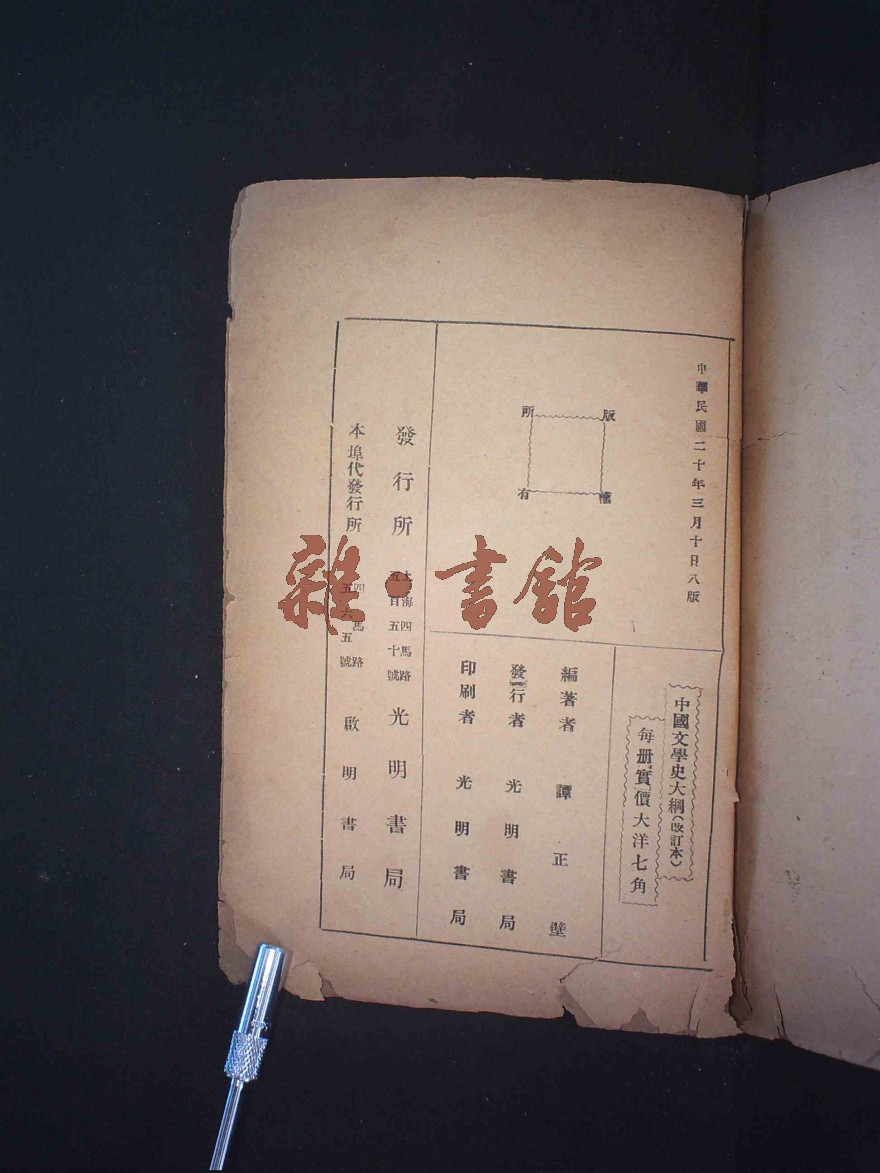 中華民國二十年三月十日八版
版權所有
中國文學史大綱(改訂本)
每册實價大洋七角
編著者 譚正璧
發行者 光明書局
印刷者 光明書局
發行所 上海四馬路五百五十號 光明書局
本埠代發行所 四馬路五六五號 啟明書局
雜·書館